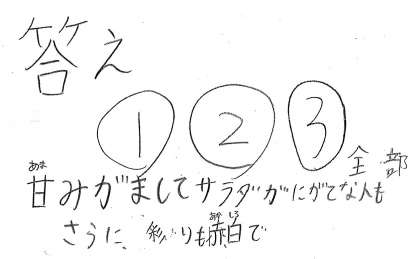 答え
① ② ③ 全部
甘みがましてサラダがにがてな人も
さらに、彩りも赤白で